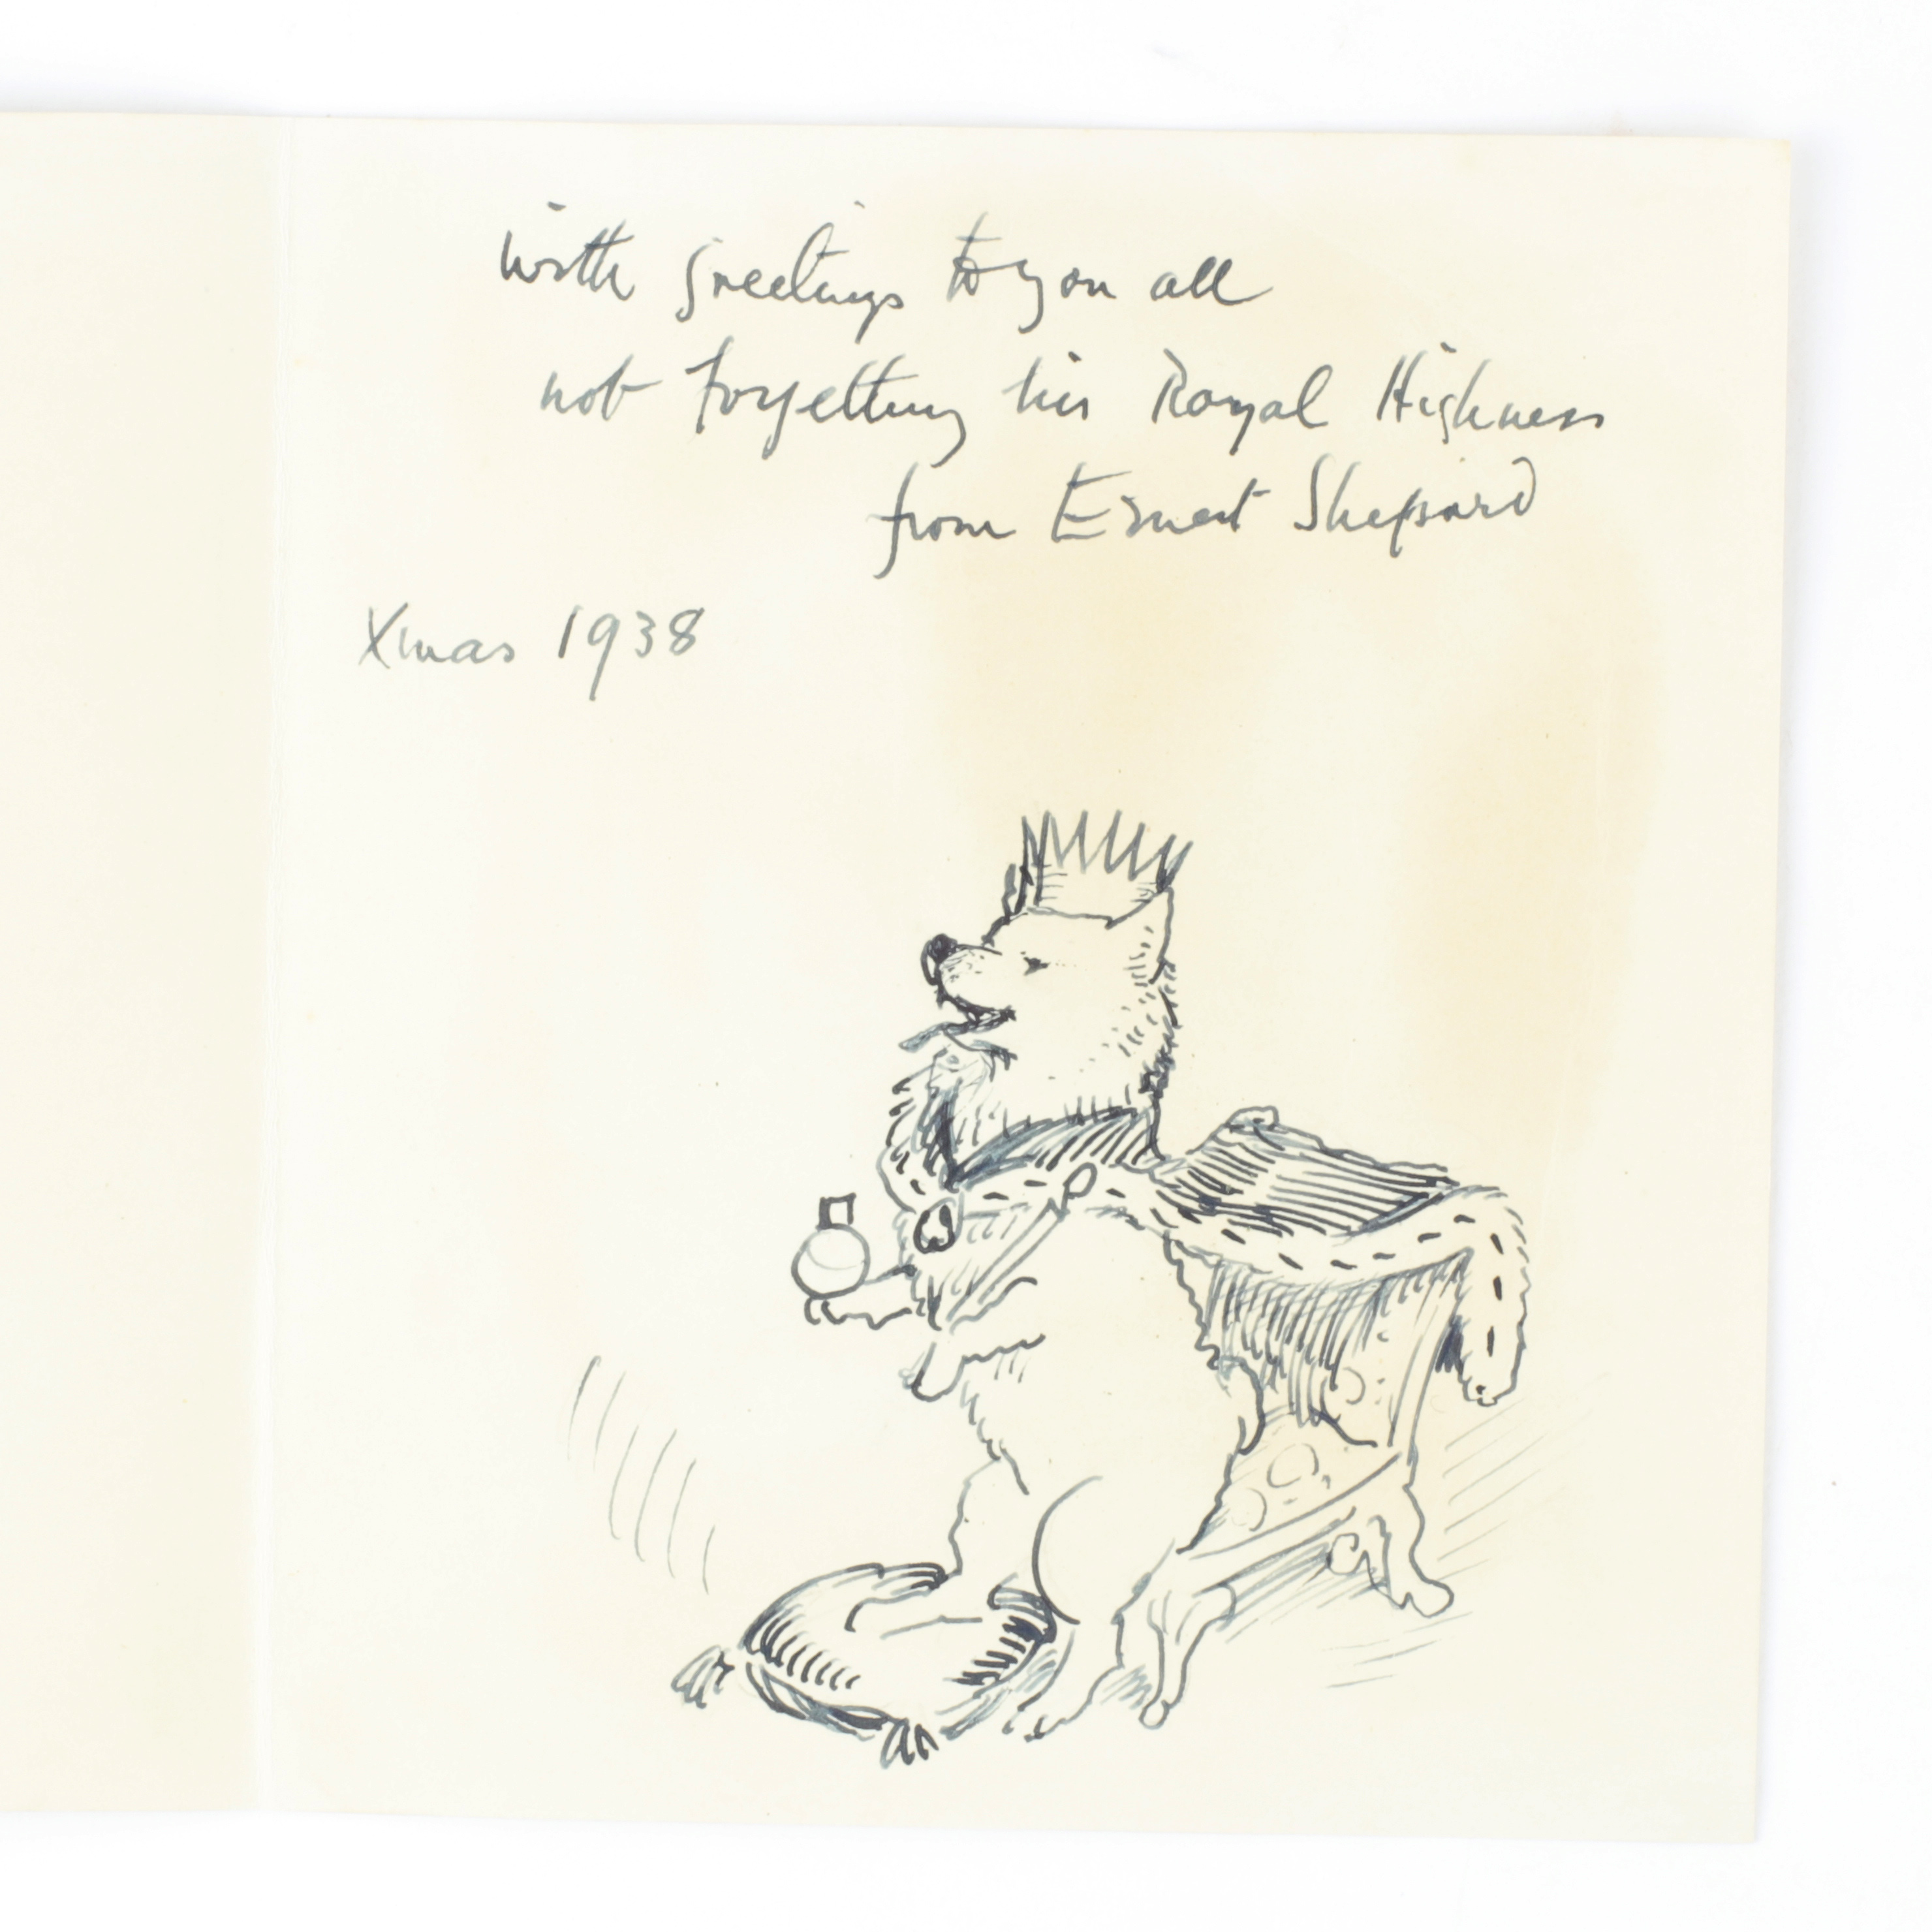 with greetings to you all
not forgetting his Royal Highness
from Ernest Shepard
Xmas 1938